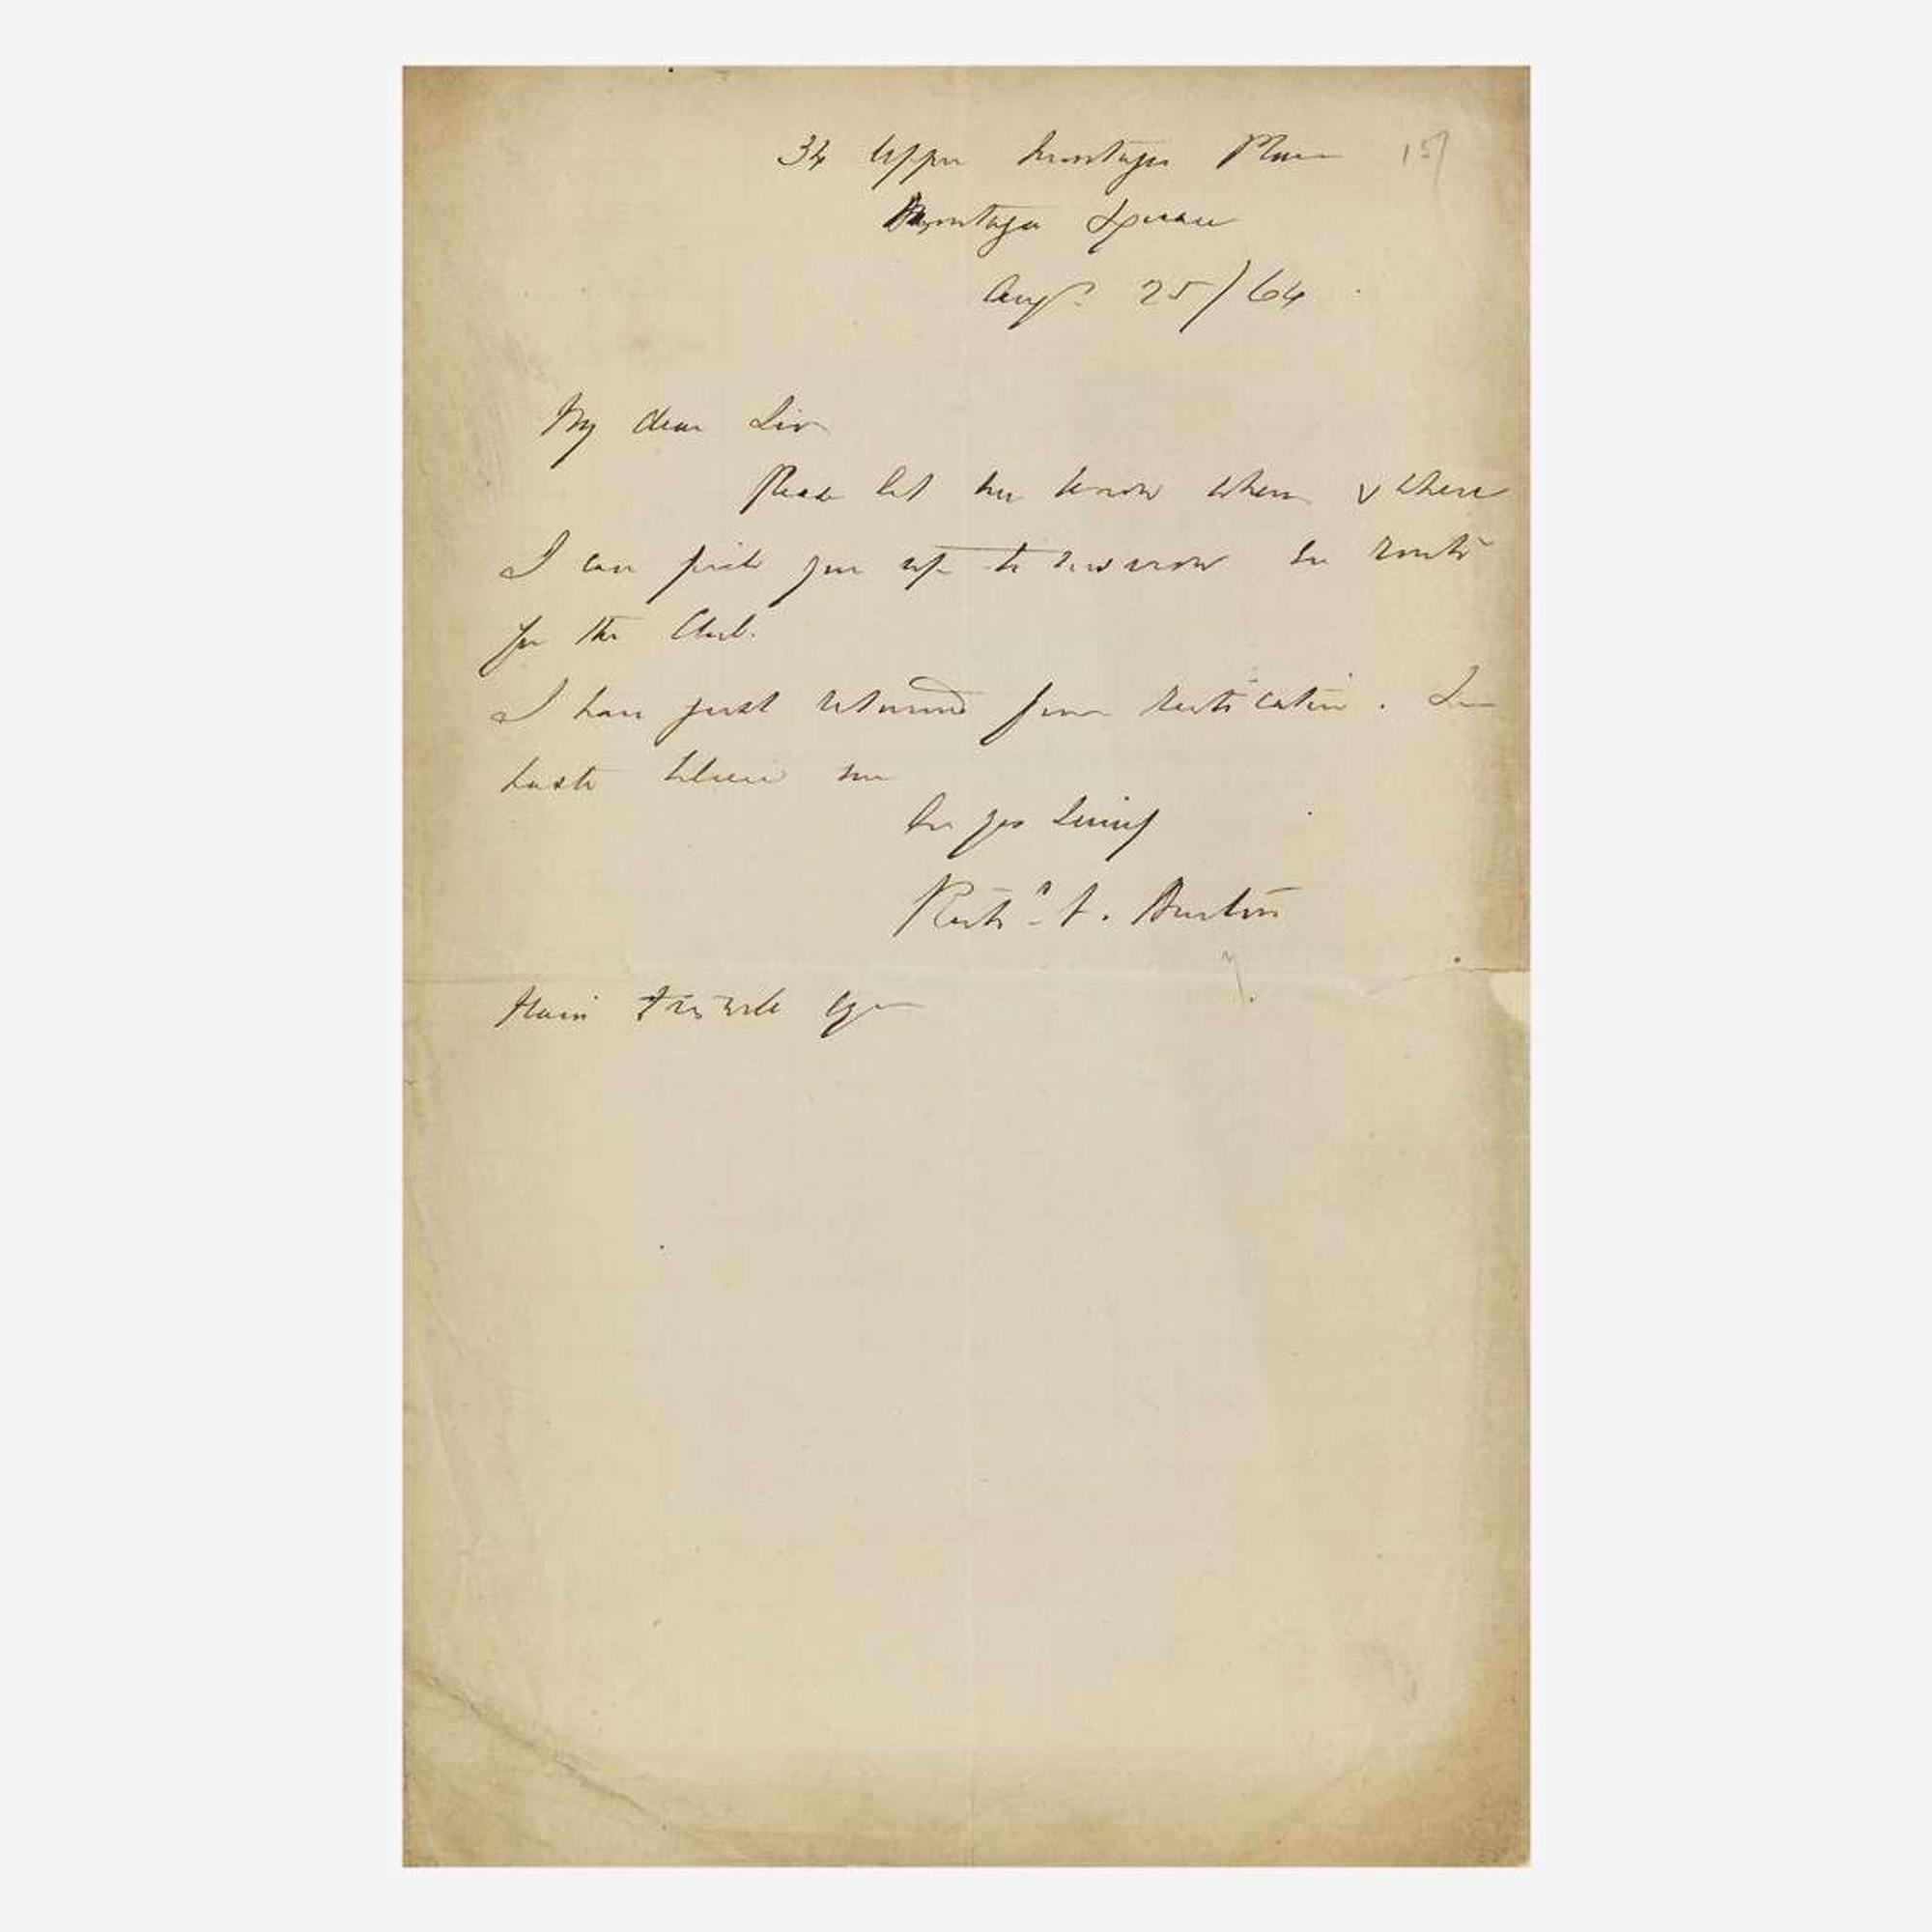 34 Upper Montagu Place 15/
Montagu Square
Augt 25/64
My dear Sir
Please let me know when & where
I can pick you up tomorrow en route
for the Club.
I have just returned from rustication. In
haste believe me
Ever yrs sincerely
Richd F. Burton
Hain Friswell Esqre